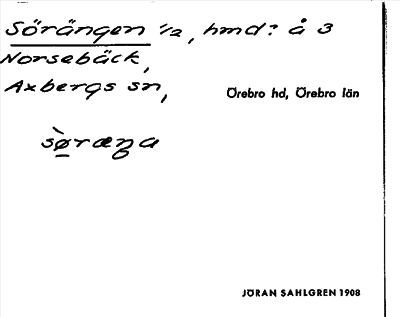 Sörängen 1/2, hmd: å 3
Norsebäck,
Axbergs sn,
Örebro hd, Örebro län
sø̀ræŋa
JÖRAN SAHLGREN 1908